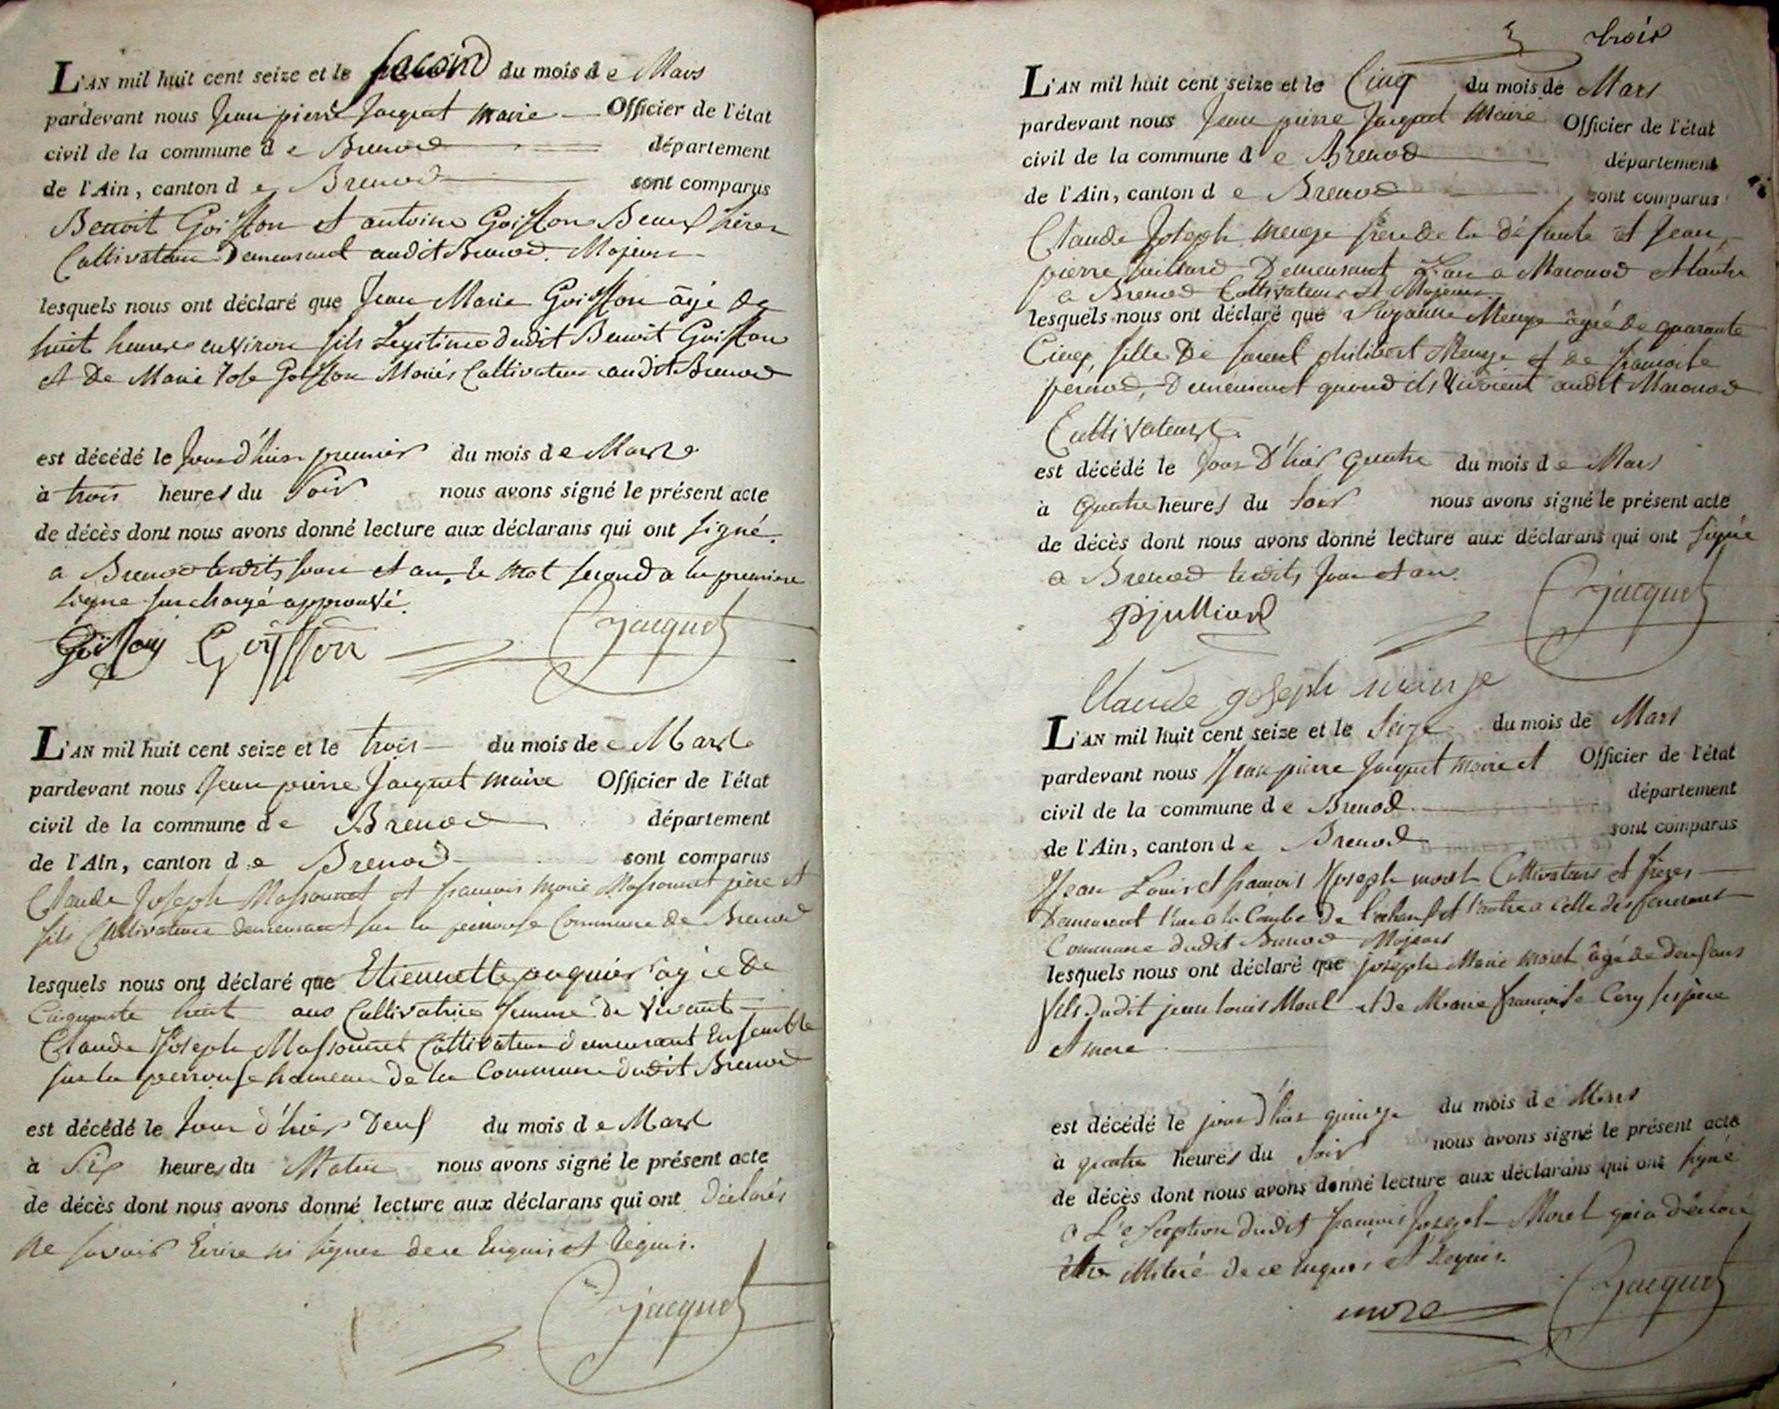 L'AN mil huit cent seize et le second du mois de Mars
pardevant nous Jean pierre Jacquet maire Officier de l'état
civil de la commune de Brenod département
de l'Ain, canton de Brenod sont comparus
Benoit Goiffon et antoine Goiffon Beauf hères
Cultivateurs Demeurant audit Brenod. Majeurs
lesquels nous ont déclaré que Jean Marie Goiffon âgé de
huit heures environ fils Legitime dudit Benoit Goiffon
et De Marie Goiffon Mariés Cultivateurs audit Brenod
est décédé le Jour d'hier premier du mois de Mars
à trois heures du Soir nous avons signé le présent acte
de décès dont nous avons donné lecture aux déclarans qui ont signé.
a Brenod lesdits Jour et an. le mot second a la premiere
ligne surchargé approuvé.
Goiffon Goiffon Jacquet
L'AN mil huit cent seize et le trois du mois de Mars
pardevant nous Jean pierre Jacquet maire Officier de l'état
civil de la commune de Brenod département
de l'Ain, canton de Brenod sont comparus
Claude Joseph Massonnet et francois marie Massonnet père et
fils Cultivateurs demeurant sur la perrouse Commune de Brenod
lesquels nous ont déclaré que Etiennette paquier âgée de
Cinquante huit ans Cultivatrice femme de Vivant
Claude Joseph Massonnet Cultivateur demeurant Ensemble
sur la perrouse hameau de la Commune dudit Brenod
est décédé le Jour d'hier Deux du mois de Mars
à Six heures du Matin nous avons signé le présent acte
de décès dont nous avons donné lecture aux déclarans qui ont Déclarés
ne savoir Ecrire ni signer de ce Enquis et Réquis.
Jacquet
3 trois
L'AN mil huit cent seize et le Cinq du mois de Mars
pardevant nous Jean pierre Jacquet Maire Officier de l'état
civil de la commune de Brenod département
de l'Ain, canton de Brenod sont comparus
Claude Joseph Menge frere de la défunte et Jean
pierre Juillard Demeurant L'un a Macconod et l'autre
a Brenod Cultivateurs et Majeurs
lesquels nous ont déclaré que Menge âgée de quarante
Cinq, fille De philibert Menge et de francoise
perrod, Demeurant quand ils Vivoient audit Macconod
Cultivateurs.
est décédé le Jour D'hier quatre du mois de Mars
à quatre heures du Soir nous avons signé le présent acte
de décès dont nous avons donné lecture aux déclarans qui ont signée
a Brenod lesdits Jour et an.
pjulliard Jacquet
Claude joseph mainge
L'AN mil huit cent seize et le Seize du mois de Mars
pardevant nous Jean pierre Jacquet maire et Officier de l'état
civil de la commune de Brenod département
de l'Ain, canton de Brenod sont comparus
Jean Louis et francois Joseph morel Cultivateurs et frères
Demeurant l'un a la Combe De et l'autre a celle des
Commune dudit Brenod Majeurs
lesquels nous ont déclaré que joseph Marie morel âgé de deux ans
fils dudit jean louis Morel et de Marie francoise Cary ses père
et mere
est décédé le jour d'hier quinze du mois de Mars
à quatre heures du Soir nous avons signé le présent acte
de décès dont nous avons donné lecture aux déclarans qui ont signé
a L'exception dudit francois Joseph Morel qui a déclaré
de ce Enquis et Requis.
more Jacquet